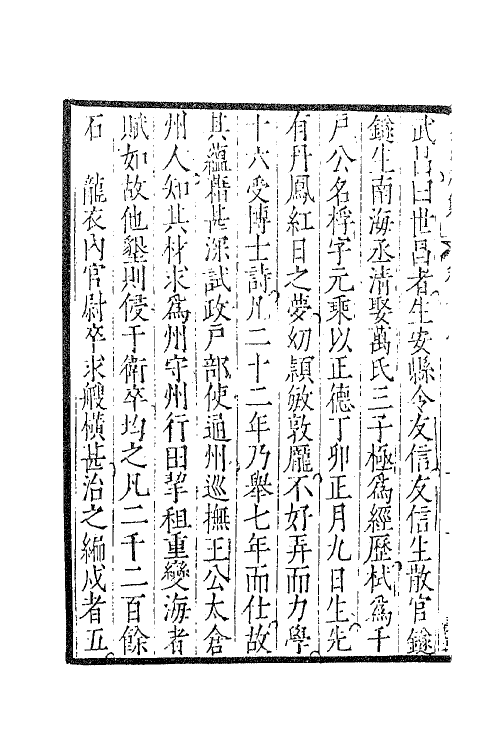 武昌曰世昌者生安縣令友信友信生散官鐩
鐩生南海丞清娶萬氏三子極爲經歷栻爲千
戶公名桴字元乘以正德丁卯正月九日生先
有丹鳳紅日之夢幼頴敏敦龎不好弄而力學
十六受博士詩凡二十二年乃舉七年而仕故
其蘊楷甚深試政戸部使通州巡撫王公太倉
州人知其材求爲州守州行田挈租重變海者
賦如故他墾則侵于衛卒均之凡二千二百餘
石　龍衣內官尉卒求艘橫甚治之緬戍者五